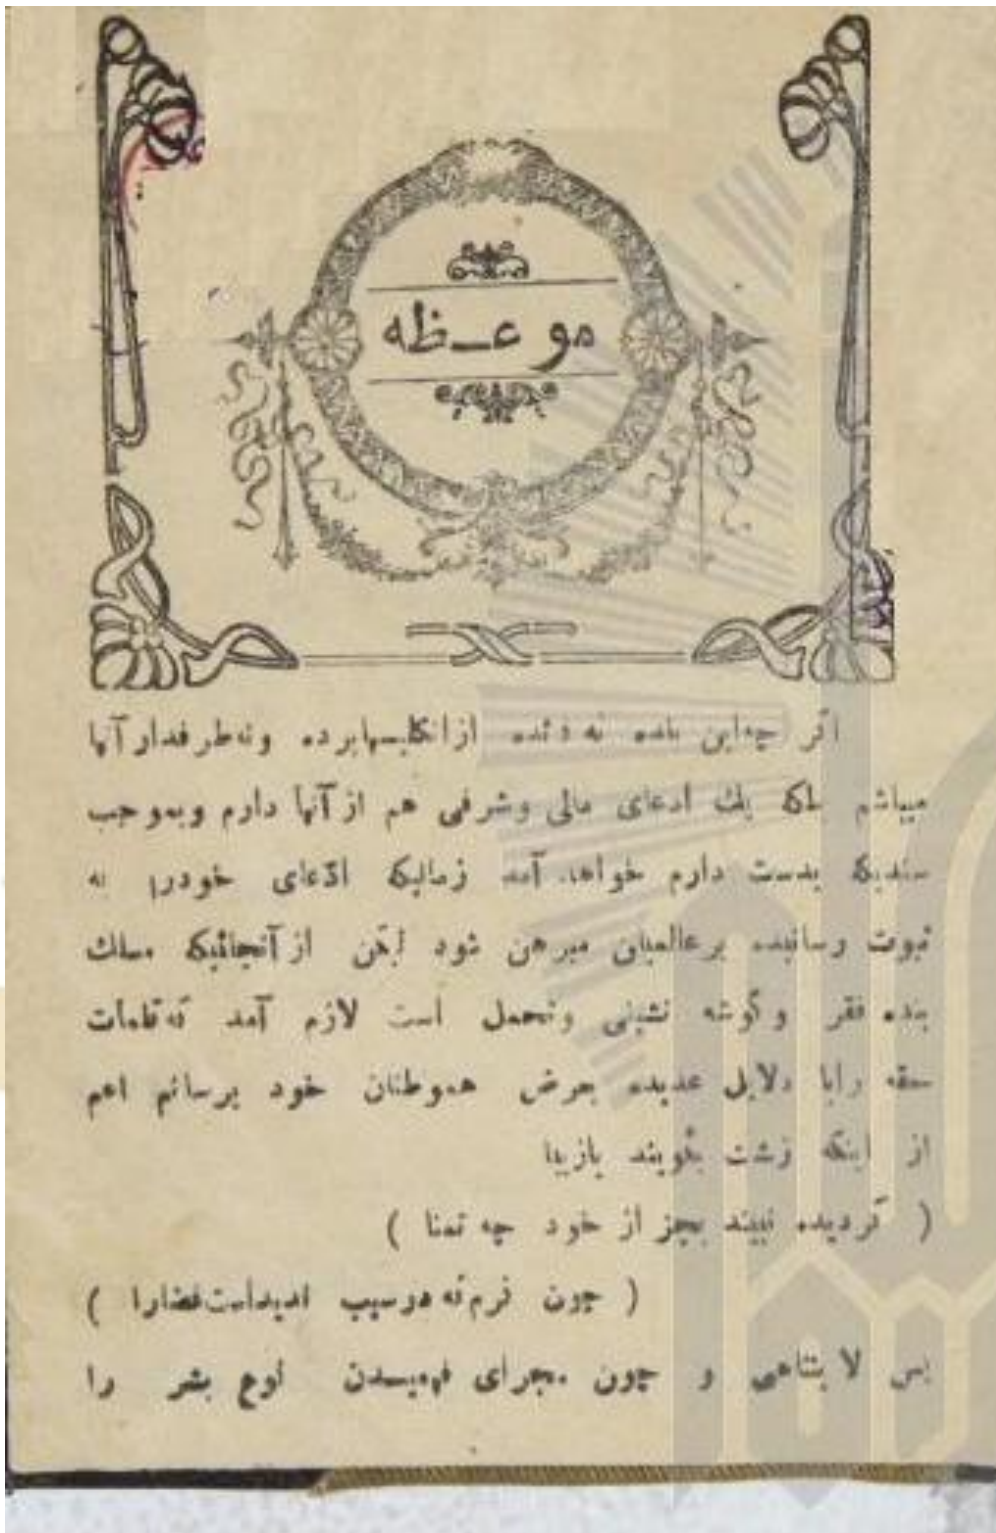 موعـظه
اگر چه‌این بنده نه فائده ازانگلیسهابرده ونه‌طرفدارآنها
میباشم بلکه یك ادعای مالی وشرفی هم ازآنها دارم وبموجب
سندیکه بدست دارم خواهد آمد زمانیکه ادّعای خودرا به
ثبوت رسانیده برعالمیان مبرهن شود لیکن ازآنجائیکه مسلك
بنده فقر وگوشه نشینی وتحمل است لازم آمد که‌کلمات
حقه رابا دلایل عدیده بعرض هموطنان خود برسانم اعم
از اینکه زشت بگویند یازیبا
( گردیده نبیند بجز از خود چه تمنا )
( چون کرم‌که درسیب ندیداست‌فضارا )
پس لایتناهی و چون مجرای فهمیدن نوع بشر را